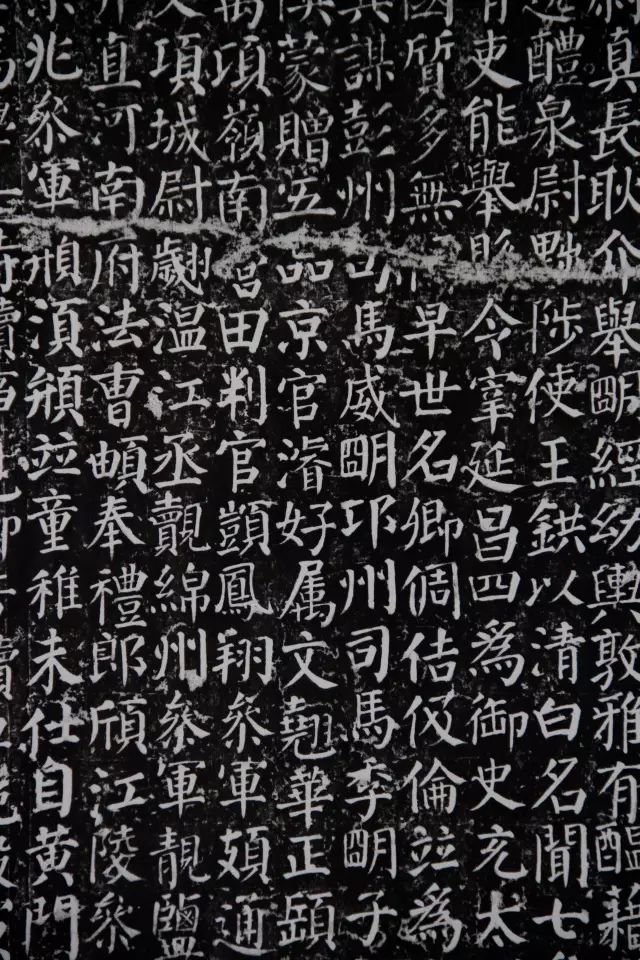 真長耿介舉明經幼輿敦雅有醞藉
醴泉尉黜陟使王鉷以清白名聞七
吏能舉縣令宰延昌四為御史充太
質多無早世名卿倜佶伋倫並為
謀彭州司馬威明邛州司馬季明子
蒙贈五品京官濬好屬文翹華正
項嶺南營田判官顗鳳翔參軍頗通
項城尉翽溫江丞覿綿州參軍靚鹽
直河南府法曹頔奉禮郎頎江陵參
兆參軍須並童稚未仕自黃門